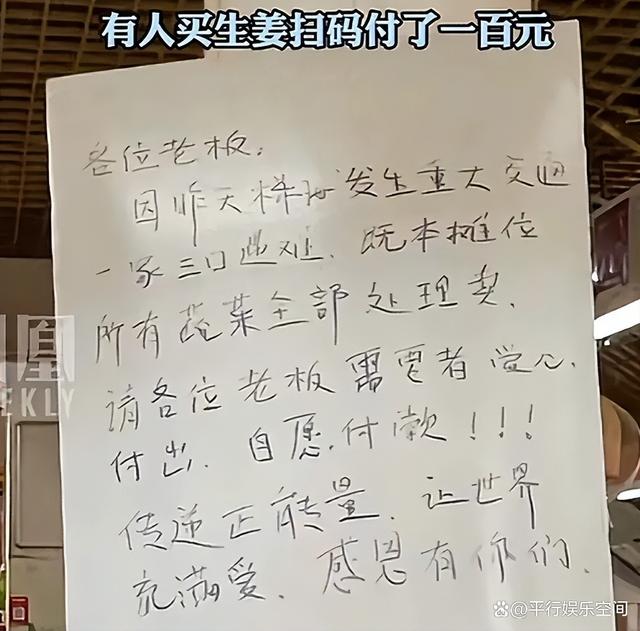 有人买生姜扫码付了一百元
各位老板:
因昨天梯面发生重大交通
一家三口遇难、既本摊位
所有蔬菜全部处理卖、
请各位老板需要者爱心、
付出、自愿、付款!!!
传递正能量、让世界
充满爱、感恩有你们、
凰
EKLY
@平行娱乐空间